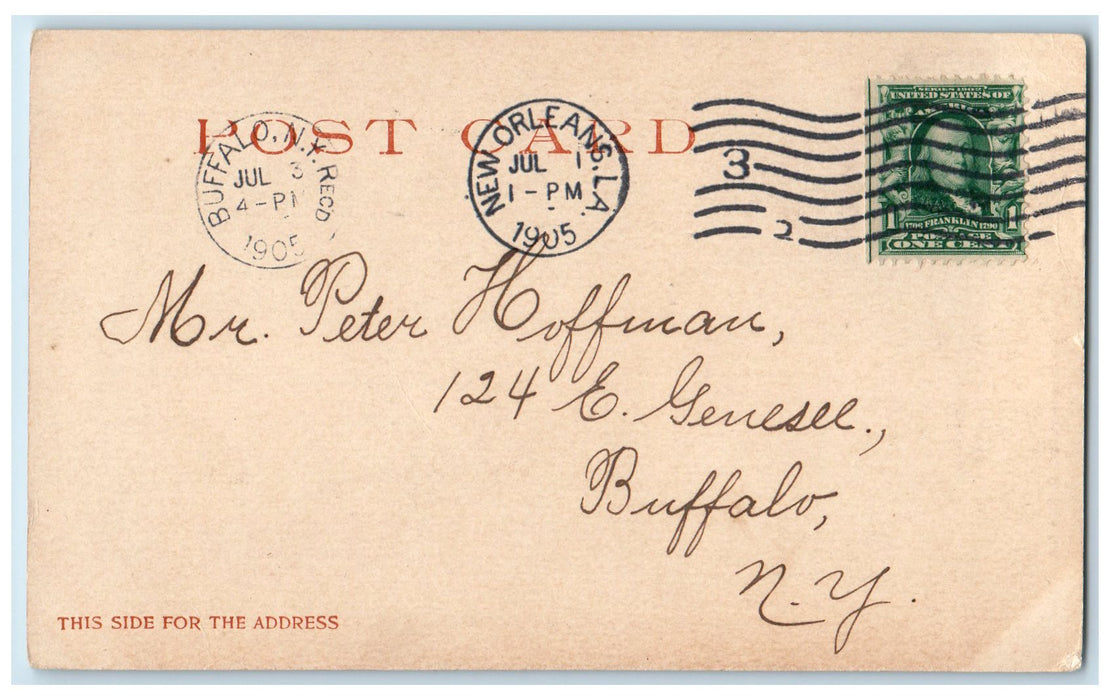 POST CARD
BUFFALO, N.Y. REC'D
JUL 3
4-PM
1905
NEW ORLEANS, LA.
JUL 1
1-PM
1905
3
2
SERIES 1902
UNITED STATES OF
AMERICA
1706 FRANKLIN 1790
1 1
POSTAGE
ONE CENT
Mr. Peter Hoffman,
124 E. Genesee.,
Buffalo,
N.Y.
THIS SIDE FOR THE ADDRESS